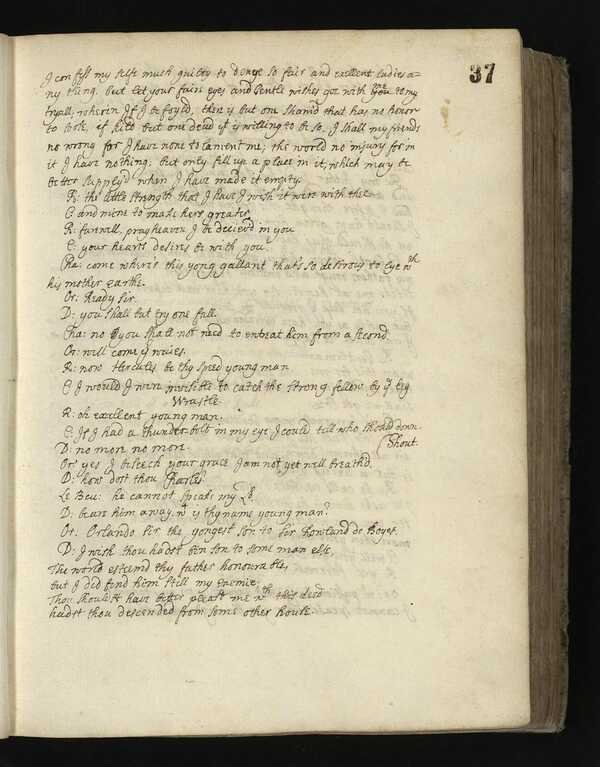 37
I confess my selfe much guilty to denye so fair and exellent ladies a=
ny thing. but let your fair eyes and gentle wishes goe with me to my
tryall, wherin If I be foyld, ther is but one shamd that has no honor
to loose, if kild but one dead yt is willing to be so. I shall my friends
no wrong for I have none to lament me; the world no injury for in
it I have nothing: but only fill up a place in it, which may be
better supply'd when I have made it empty.
R: the little strength that I have I wish it were with thee
C: and mine to make hers greater
R: farwill. pray heaven I be deciev'd in you
C: your hearts desires be with you.
Cha: come where's this yong gallant that's so desirous to lye wth
his mother earthe.
Or: Ready sir.
D: you shall but try one fall.
Cha: no you shall not need to entreat him from a second.
Or: will come yr waies.
R: now Hercules be thy speed young man
C I would I were invisible to catch the strong fellow by ye leg
Wrastle.
R: oh exellent young man.
C: If I had a thunder bolt in my eye I could tell who should down.
Shout.
D: no more no more.
Or: yes I beseech your grace I am not yet well breath'd.
D: how dost thou Charles.
Le Beu: he cannot speake my Ld.
D: beare him away. wt is thy name young man?
Or. Orlando sir the yongest son to Sir Rowland de Boyes.
D: I wish thou hadst ben son to some man else,
The world esteemd thy father honourable,
but I did fend him still my enemie;
Thou shouldst have better pleas'd me wth this deed
hadst thou descended from some other house.